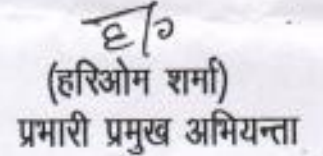 ह/०
(हरिओम शर्मा)
प्रभारी प्रमुख अभियन्ता